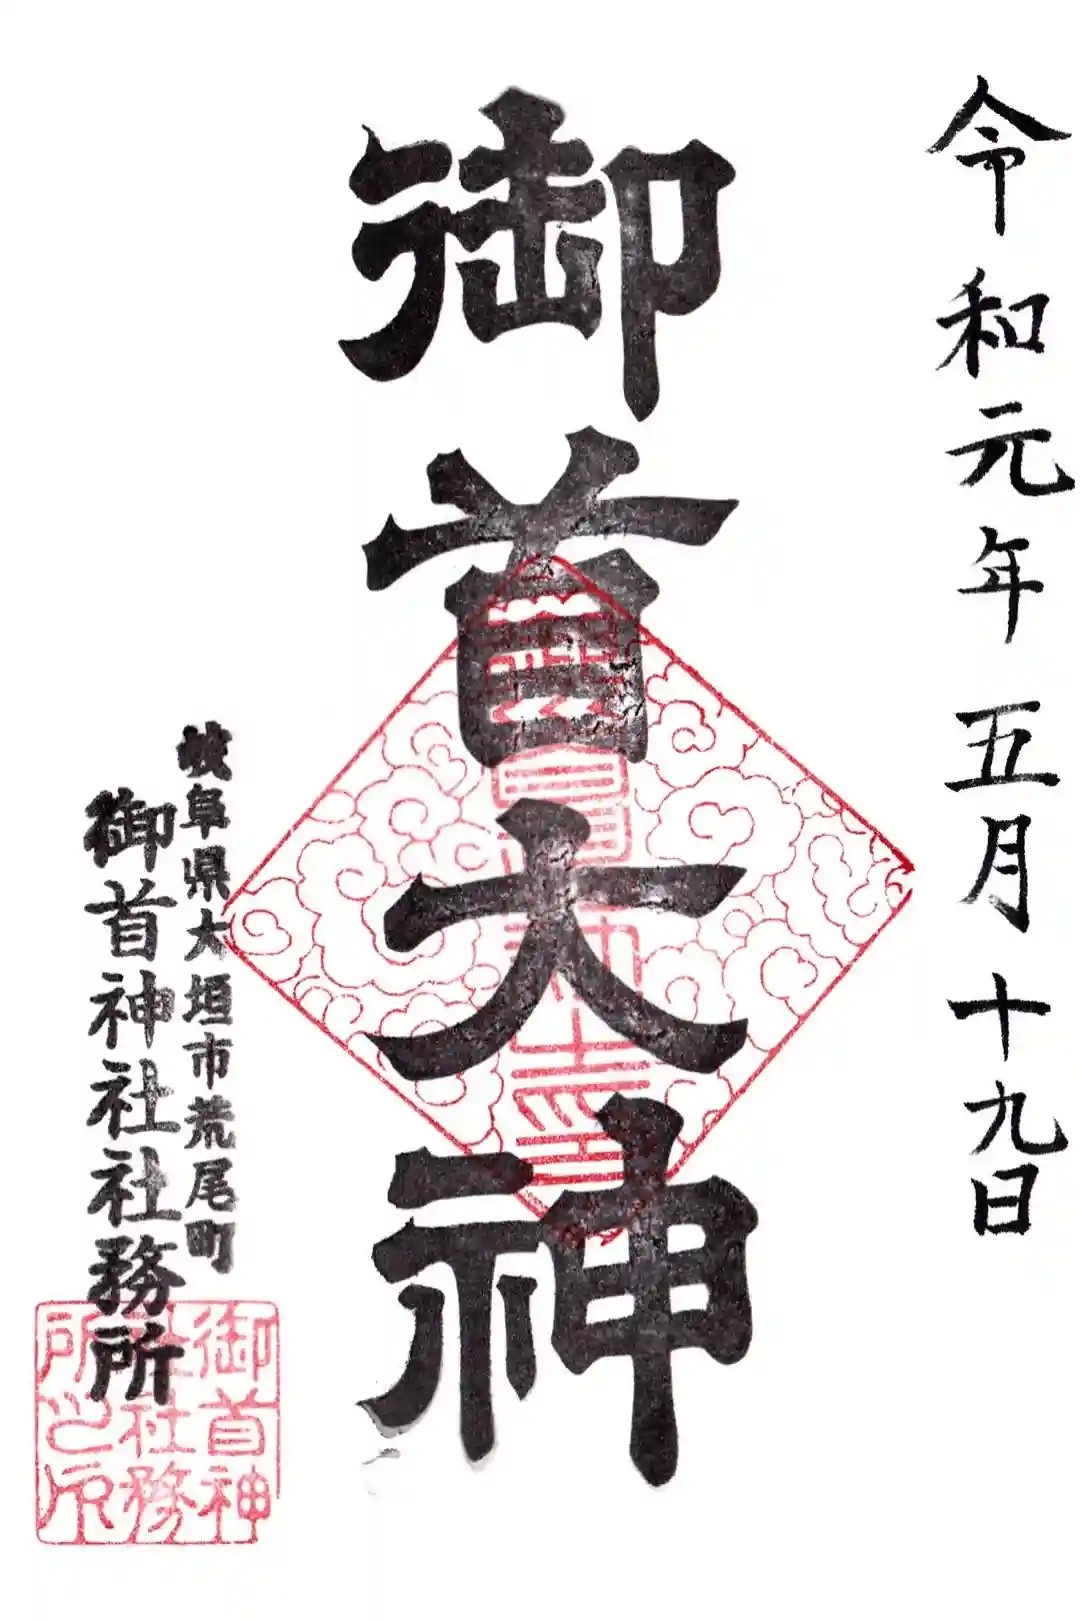 令和元年五月十九日
御首大神
岐阜県大垣市荒尾町
御首神社社務所
御首神
社社務
所之印